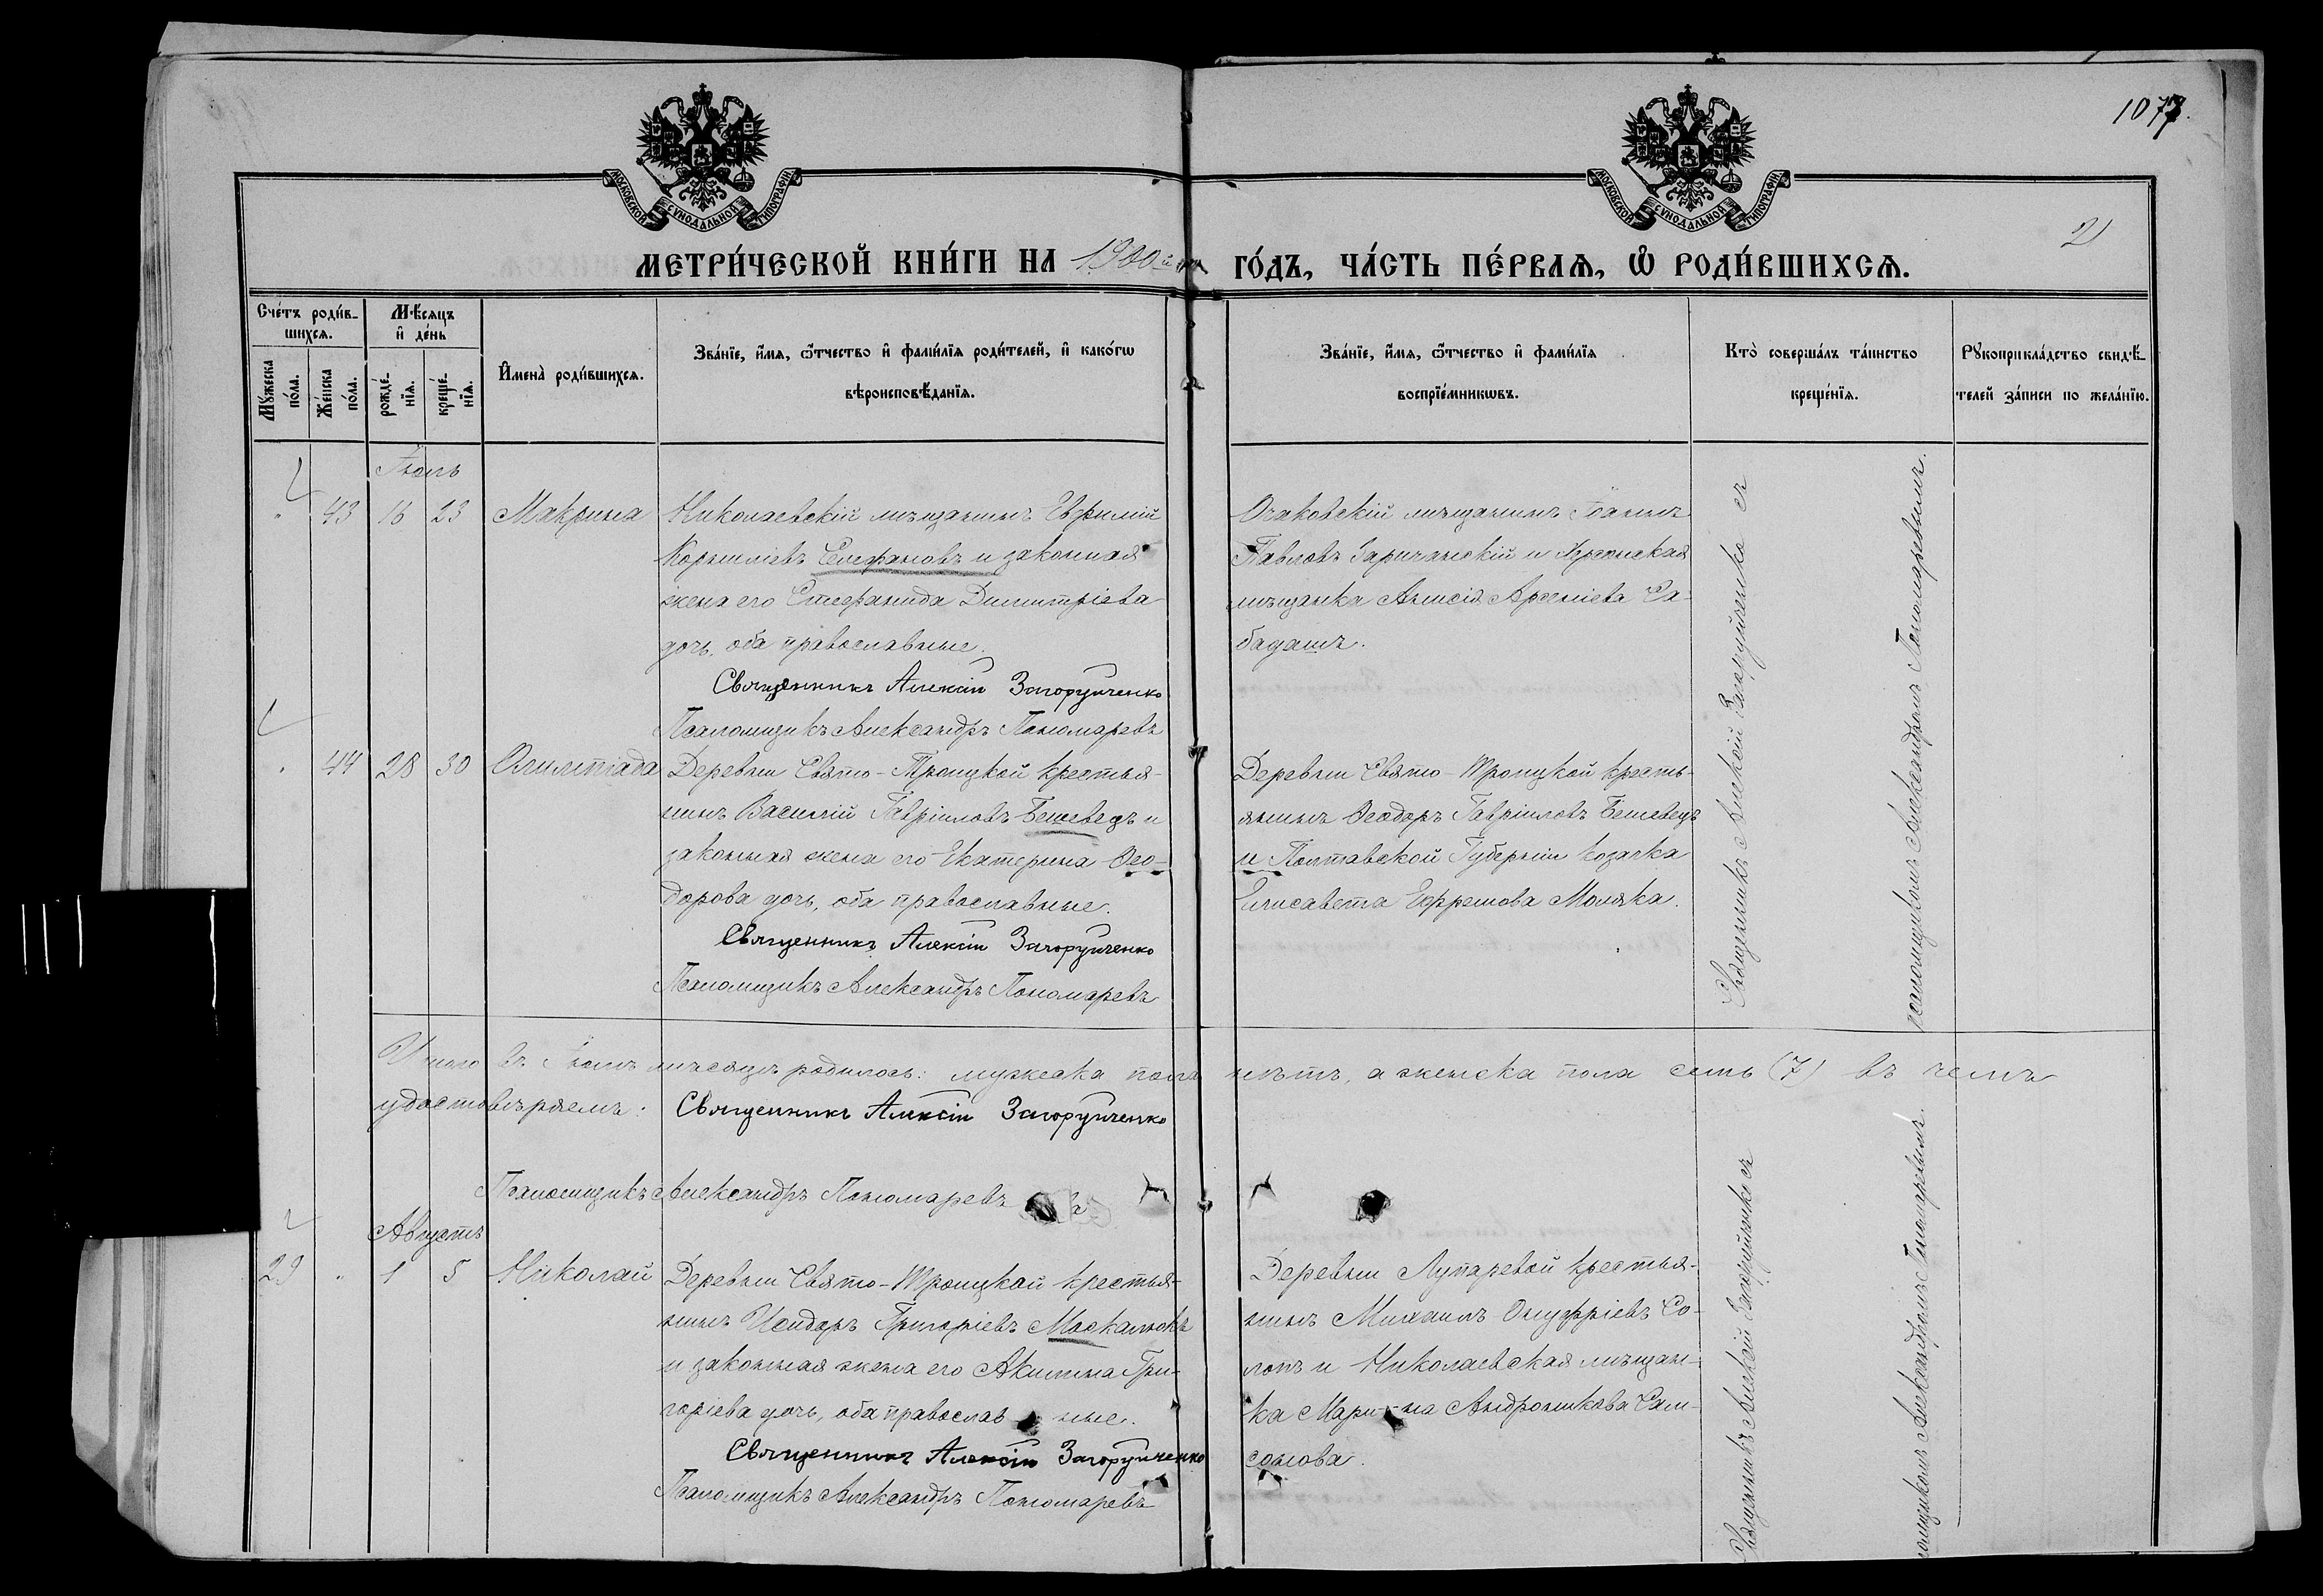 1077.
МОСКОВСКОЙ СѴНОДАЛЬНОЙ ТИПОГРАФІИ
МОСКОВСКОЙ СѴНОДАЛЬНОЙ ТИПОГРАФІИ
21
МЕТРИ́ЧЕСКОЙ КНИ́ГИ НА 1900й ГО́ДЪ, ЧА́СТЬ ПЕ́РВАѦ, Ѡ҆ РОДИ́ВШИХСѦ.
Сче́тъ роди́в-
шихсѧ.
Мꙋ́жеска по́ла.
Же́нска по́ла.
Мѣ́сяцъ
и҆ де́нь
рожде́-
нїѧ.
креще́-
нїѧ.
И҆мена̀ роди́вшихсѧ.
Зва́нїе, и҆́мѧ, ѻ҆́тчество и҆ фами́лїѧ роди́телей, и҆ како́гѡ
вѣроисповѣ́данїѧ.
Зва́нїе, и҆́мѧ, ѻ҆́тчество и҆ фами́лїѧ
воспрїе́мникѡвъ.
Кто̀ соверша́лъ та́инство
креще́нїѧ.
Рꙋкоприкла́дство свидѣ́-
телей за́писи по жела́нїю.
Іюль
43 16 23 Макрина
Николаевскій мѣщанинъ Евфимій
Корниліевъ Селифановъ и законная
жена его Стефанида Димитріева
дочь, оба православные.
Священникъ Алексій Загоруйченко
Псаломщикъ Александръ Пономаревъ
Очаковскій мѣщанинъ Іоаннъ
Павловъ Заричанскій и Херсонская
мѣщанка Анисія Арсеніева Са-
бадашъ.
44 28 30 Олимпіада
Деревни Свято-Троицкой крестья-
нинъ Василій Гавріиловъ Бешевецъ и
законная жена его Екатерина Ѳео-
дорова дочь, оба православные.
Священникъ Алексій Загоруйченко
Псаломщикъ Александръ Пономаревъ
Деревни Свято-Троицкой кресть-
янинъ Ѳеодоръ Гавріиловъ Бешевецъ
и Полтавской Губерніи козачка
Елисавета Ефремова Моляка.
Священникъ Алексій Загоруйченко съ
псаломщикомъ Александромъ Пономаревымъ.
Итого въ Іюлѣ мѣсяцѣ родилось: мужеска пола нѣтъ, а женска пола семь (7) въ чемъ
удостовѣряемъ: Священникъ Алексій Загоруйченко
Псаломщикъ Александръ Пономаревъ
Августъ
29 1 5 Николай
Деревни Свято-Троицкой крестья-
нинъ Исидоръ Григоріевъ Москалюкъ
и законная жена его Акилина Гри-
горіева дочь, оба православ ные.
Священникъ Алексій Загоруйченко
Псаломщикъ Александръ Пономаревъ
Деревни Лупаревой крестья-
нинъ Михаилъ Онуфріевъ Со-
лопъ и Николаевская мѣщан-
ка Марина Андроникова Сам-
сонова.
Священникъ Алексій Загоруйченко съ
псаломщикомъ Александромъ Пономаревымъ.